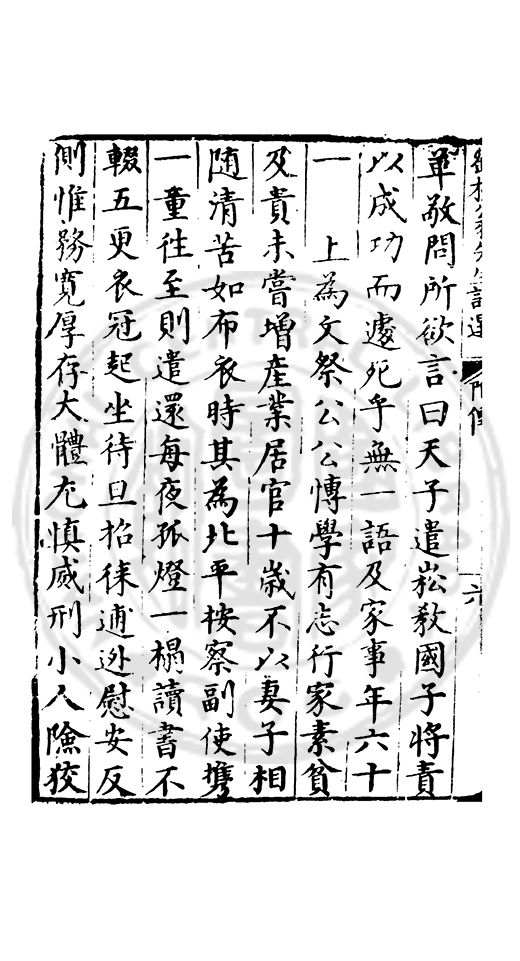 革敬問所欲言曰天子遣崧教國子將責
以成功而遽死乎無一語及家事年六十
一　上為文祭公公博學有志行家素貧
及貴未嘗增産業居官十歲不以妻子相
随清苦如布衣時其為北平按察副使攜
一童往至則遣還每夜孤燈一榻讀書不
輟五更衣冠起坐待旦招徕逋迯慰安反
側惟務寛厚存大體尤慎威刑小人險狡